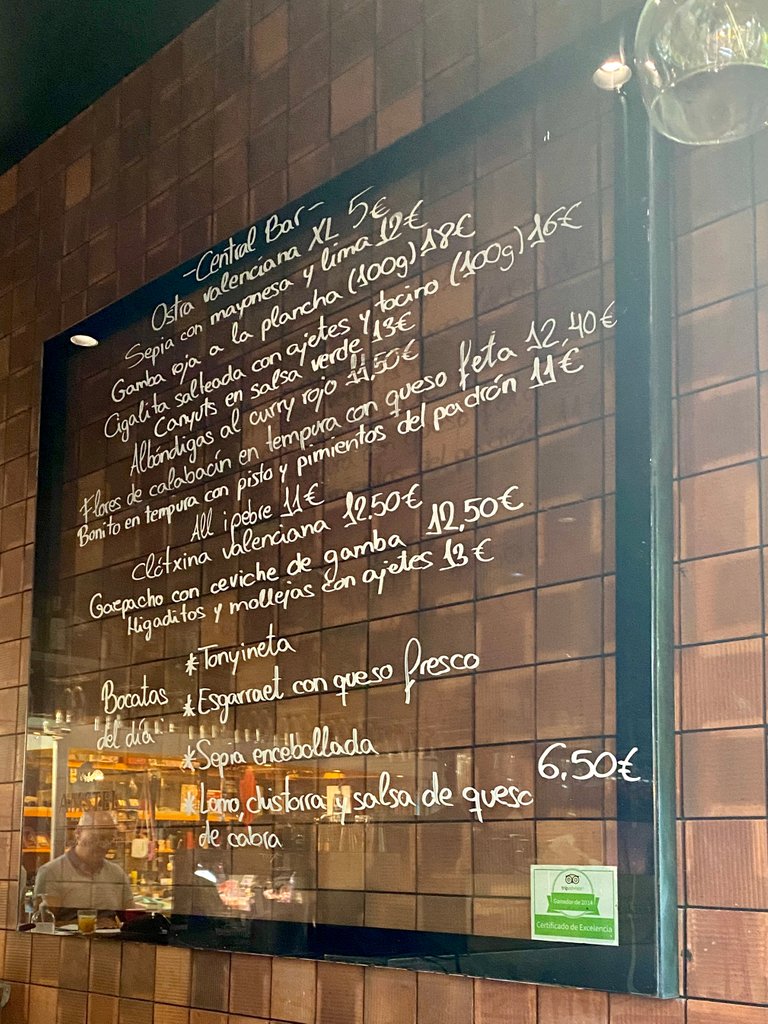 -Central Bar-
Ostra valenciana XL 5€
Sepia con mayonesa y lima 12€
Gamba roja a la plancha (100g) 18€
Cigalita salteada con ajetes y tocino (100g) 16€
Canyuts en salsa verde 13€
Albóndigas al curry rojo 11,50€
Flores de calabacín en tempura con queso feta 12,40€
Bonito en tempura con pisto y pimientos del padrón 11€
All i pebre 11€
Clótxina valenciana 12.50€
Gazpacho con ceviche de gamba 12,50€
Higaditos y mollejas con ajetes 13€
Bocatas del día
*Tonyineta
*Esgarraet con queso fresco
*Sepia encebollada
*Lomo, chistorra y salsa de queso
de cabra
6,50€
tripadvisor
Ganador de 2014
Certificado de Excelencia